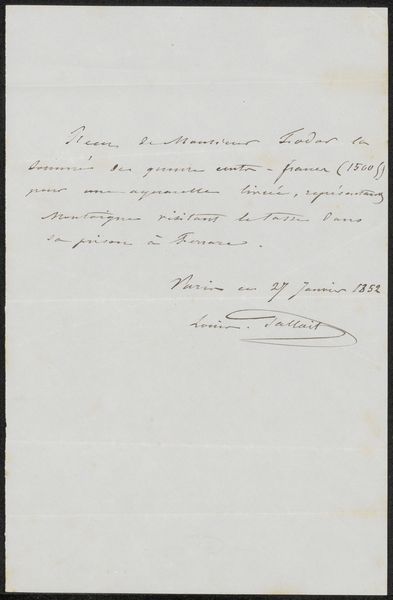 Reçu de Monsieur Fodor la
somme de quinze cents francs (1500 f)
pour une aquarelle livrée, représentant
Montaigne visitant le tasse dans
sa prison à Ferrare.
Paris ce 27 Janvier 1852
Louis. Gallait